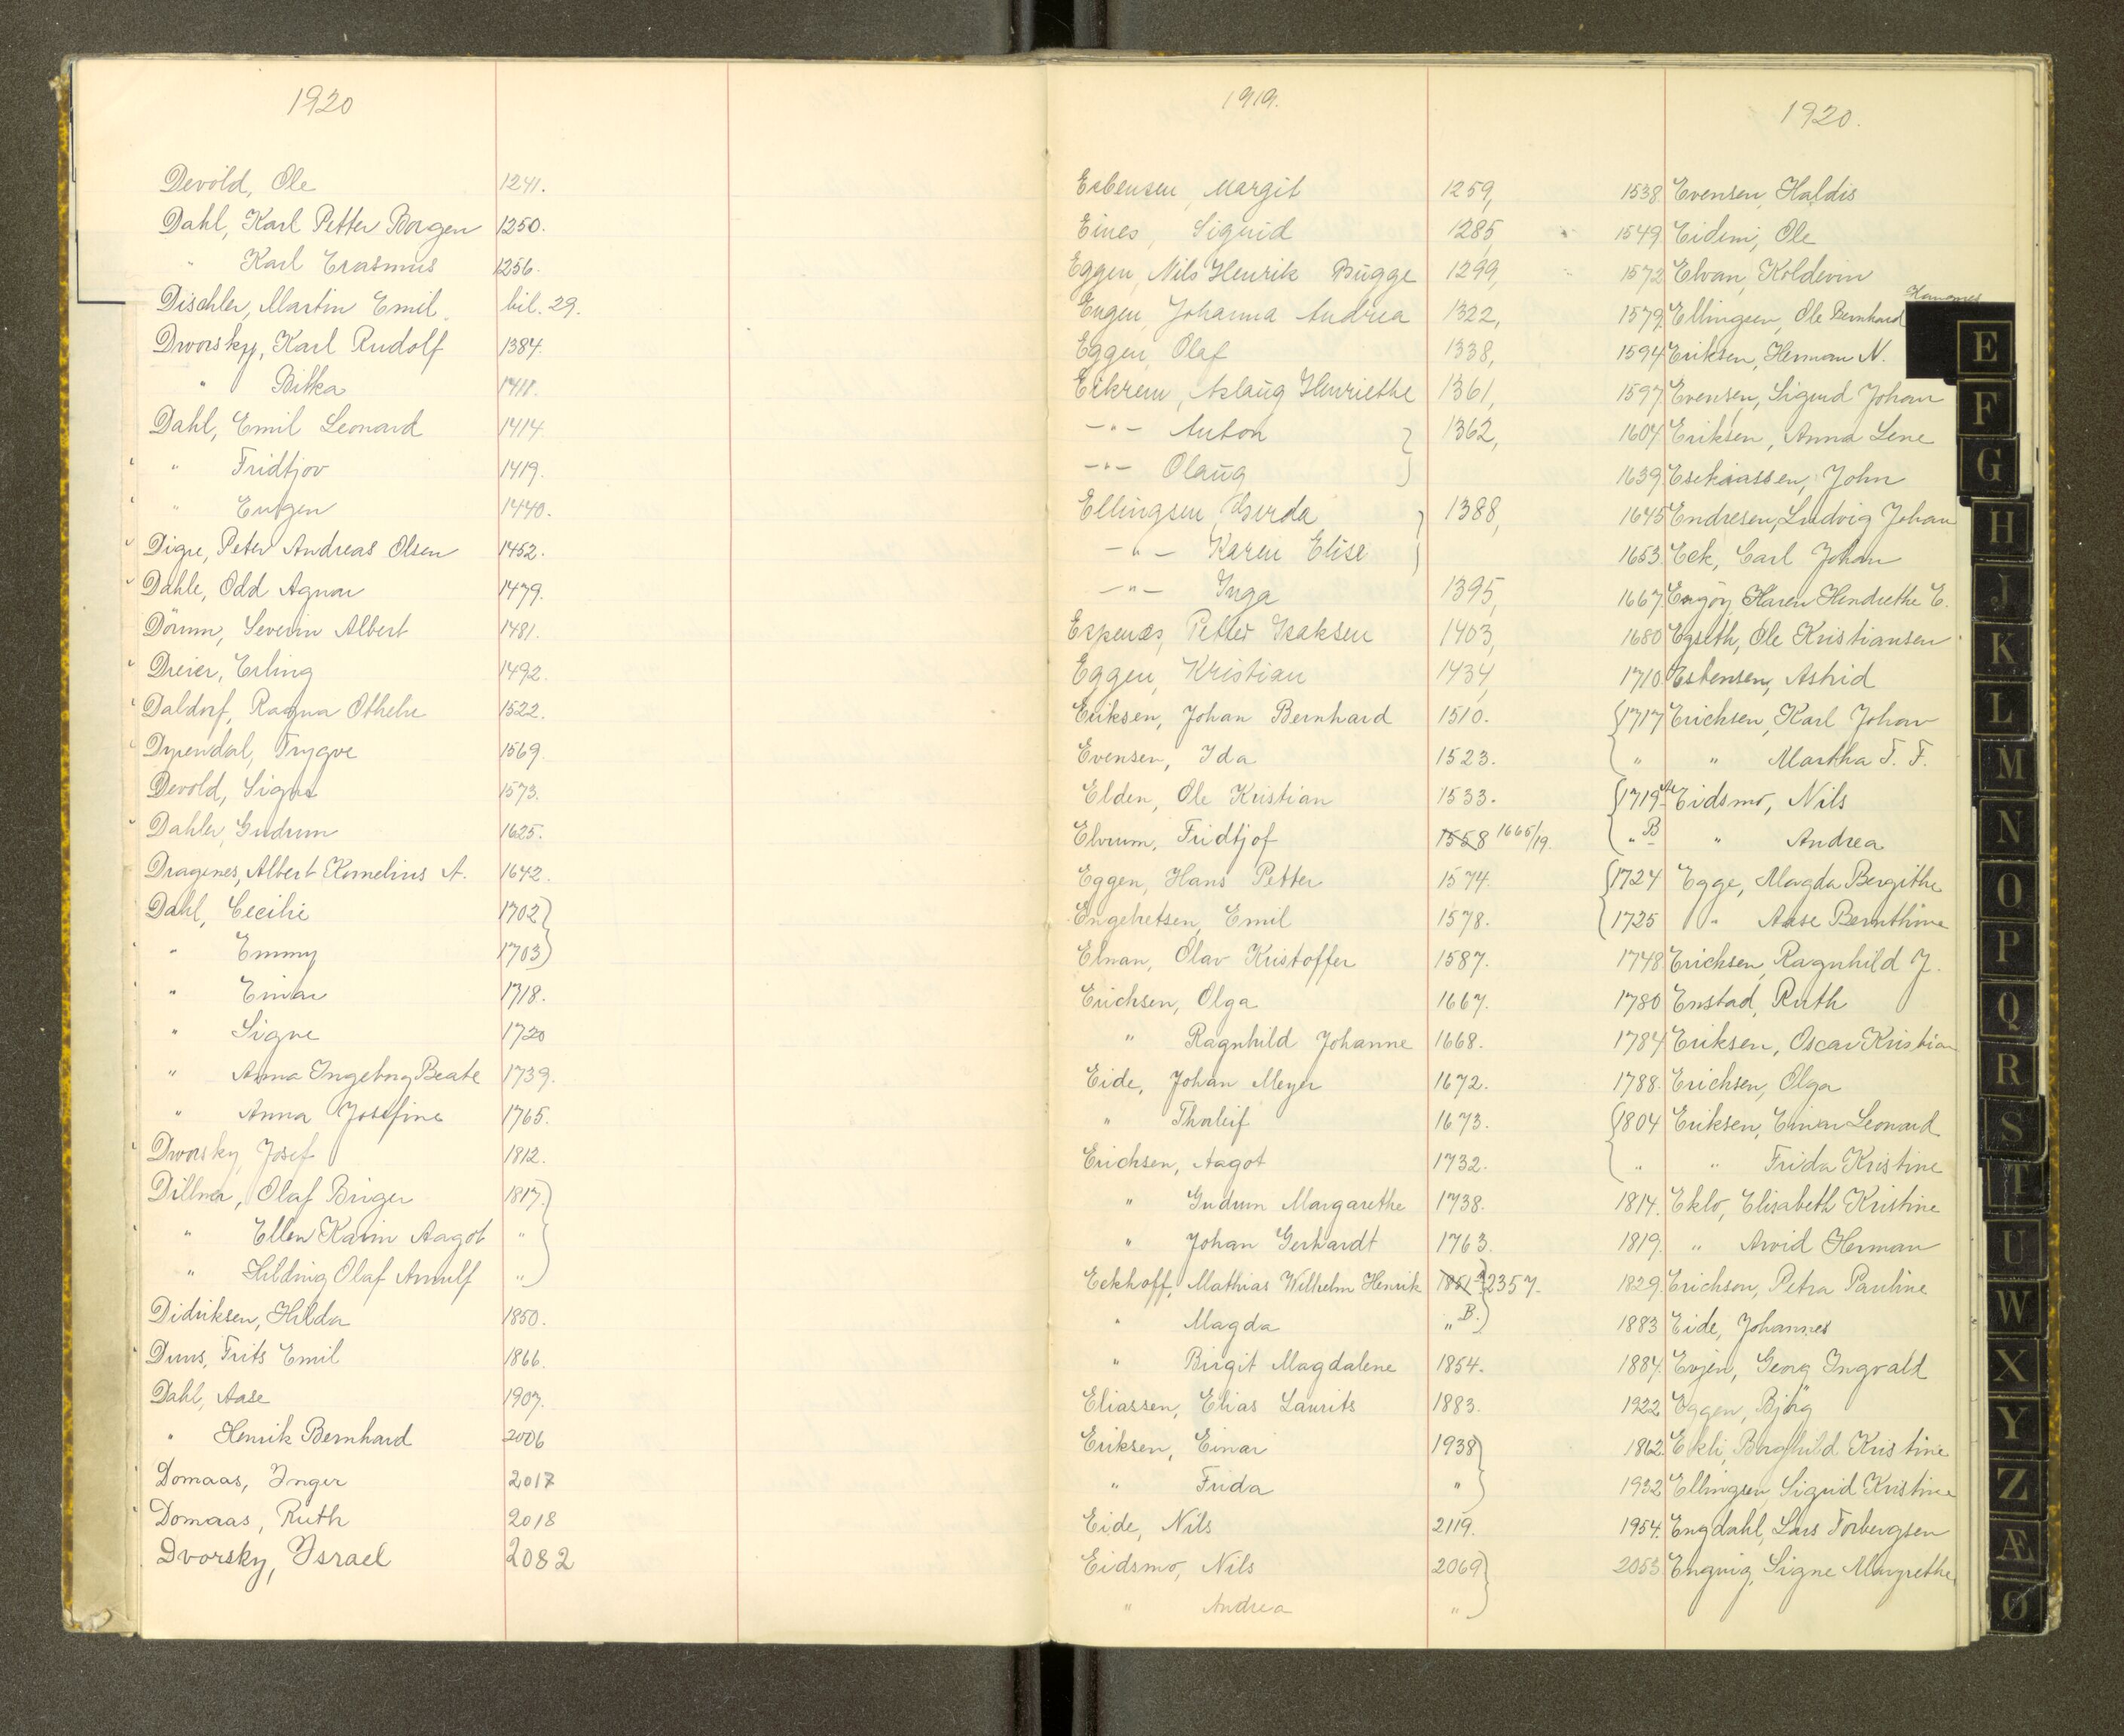 1920
Devold, Ole 1241.
Dahl, Karl Petter Borgen 1250.
" Karl Erasmus 1256.
Dischler, Martin Emil. bil. 29.
Dworsky, Karl Rudolf 1384.
" Bitka 1411.
Dahl, Emil Leonard 1414
" Fridtjov 1419.
" Eugen 1440.
Digre, Peter Andreas Olsen 1452.
Dahle, Odd Agnar 1479.
Dörum, Severin Albert 1481.
Dreier, Erling 1492.
Daldorf, Ragna Othelie 1522.
Dyrendal, Trygve 1569.
Devold, Signe 1573.
Dahler, Gudrun 1625.
Dragenes, Albert Kornelius A. 1642.
Dahl, Cecilie 1702
" Emmy 1703
" Einar 1718.
" Signe 1720
" Anna Ingeborg Beate 1739.
" Anna Josefine 1765.
Dworsky, Josef 1812.
Dillner, Olaf Birger 1817.
" Ellen Karin Aagot "
" Hilding Olaf Arnulf "
Didriksen, Hilda 1850.
Duus, Frits Emil 1866.
Dahl, Aase 1907.
" Henrik Bernhard 2006
Domaas, Inger 2017
Domaas, Ruth 2018
Dvorsky, Israel 2082
1919.
Esbensen, Margit 1259,
Eines, Sigrid 1285,
Eggen, Nils Henrik Bugge 1299,
Engen, Johanna Andrea 1322,
Eggen, Olaf 1338,
Eikrem, Aslaug Henriethe 1361,
-"- Anton 1362,
-"- Olaug
Ellingsen, Gerda 1388,
-"- Karen Elise
-"- Inga 1395,
Espenes, Petter Isaksen 1403,
Eggen, Kristian 1434,
Eriksen, Johan Bernhard 1510.
Evensen, Ida 1523.
Elden, Ole Kristian 1533.
Elvrum, Fridtjof 1558 1665/19.
Eggen, Hans Petter 1574.
Engebretsen, Emil 1578.
Elnan, Olav Kristoffer 1587.
Erichsen, Olga 1667.
" Ragnhild Johanne 1668.
Eide, Johan Meyer 1672.
" Thorleif 1673.
Erichsen, Aagot 1732.
" Gudrun Margarethe 1738.
" Johan Gerhardt 1763.
Eckhoff, Mathias Wilhelm Henrik 1851 2357.
" Magda " B.
" Birgit Magdalene 1854.
Eliassen, Elias Laurits 1883.
Eriksen, Einar 1938
" Frida "
Eide, Nils 2119.
Eidsmo, Nils 2069
" Andrea "
1920.
1538. Evensen, Haldis
1549. Eidem, Ole
1572 Elvan, Koldevin
1579. Ellingsen, Ole Bernhard
1594 Eriksen, Herman N.
1597 Evensen, Sigurd Johan
1604 Eriksen, Anna Lene
1639 Esekiassen, John
1645 Endresen, Ludvig Johan
1653. Eck, Carl Johan
1667. Engöy, Karen Hendrethe E.
1680 Egseth, Ole Kristiansen
1710 Estensen, Astrid
1717 Erichsen, Karl Johan
" " Martha T. F.
1719 A Eidsmo, Nils
" B " Andrea
1724 Egge, Magda Bergithe
1725 " Aase Bernthine
1748 Erichsen, Ragnhild J.
1780 Enstad, Ruth
1784 Eriksen, Oscar Kristian
1788. Erichsen, Olga
1804 Eriksen, Einar Leonard
" " Frida Kristine
1814. Eklo, Elisabeth Kristine
1819. " Arvid Herman
1829. Erichson, Petra Pauline
1883 Eide, Johannes
1884. Evjen, Georg Ingvald
1922 Eggen, Björg
1862. Ekli, Borghild Kristine
1932 Ellingsen, Sigrid Kristine
1954. Engdahl, Lars Torbergsen
2053 Engvig, Signe Margrethe
E
F
G
H
J
K
L
M
N
O
P
Q
R
S
T
U
W
X
Y
Z
Æ
Ø